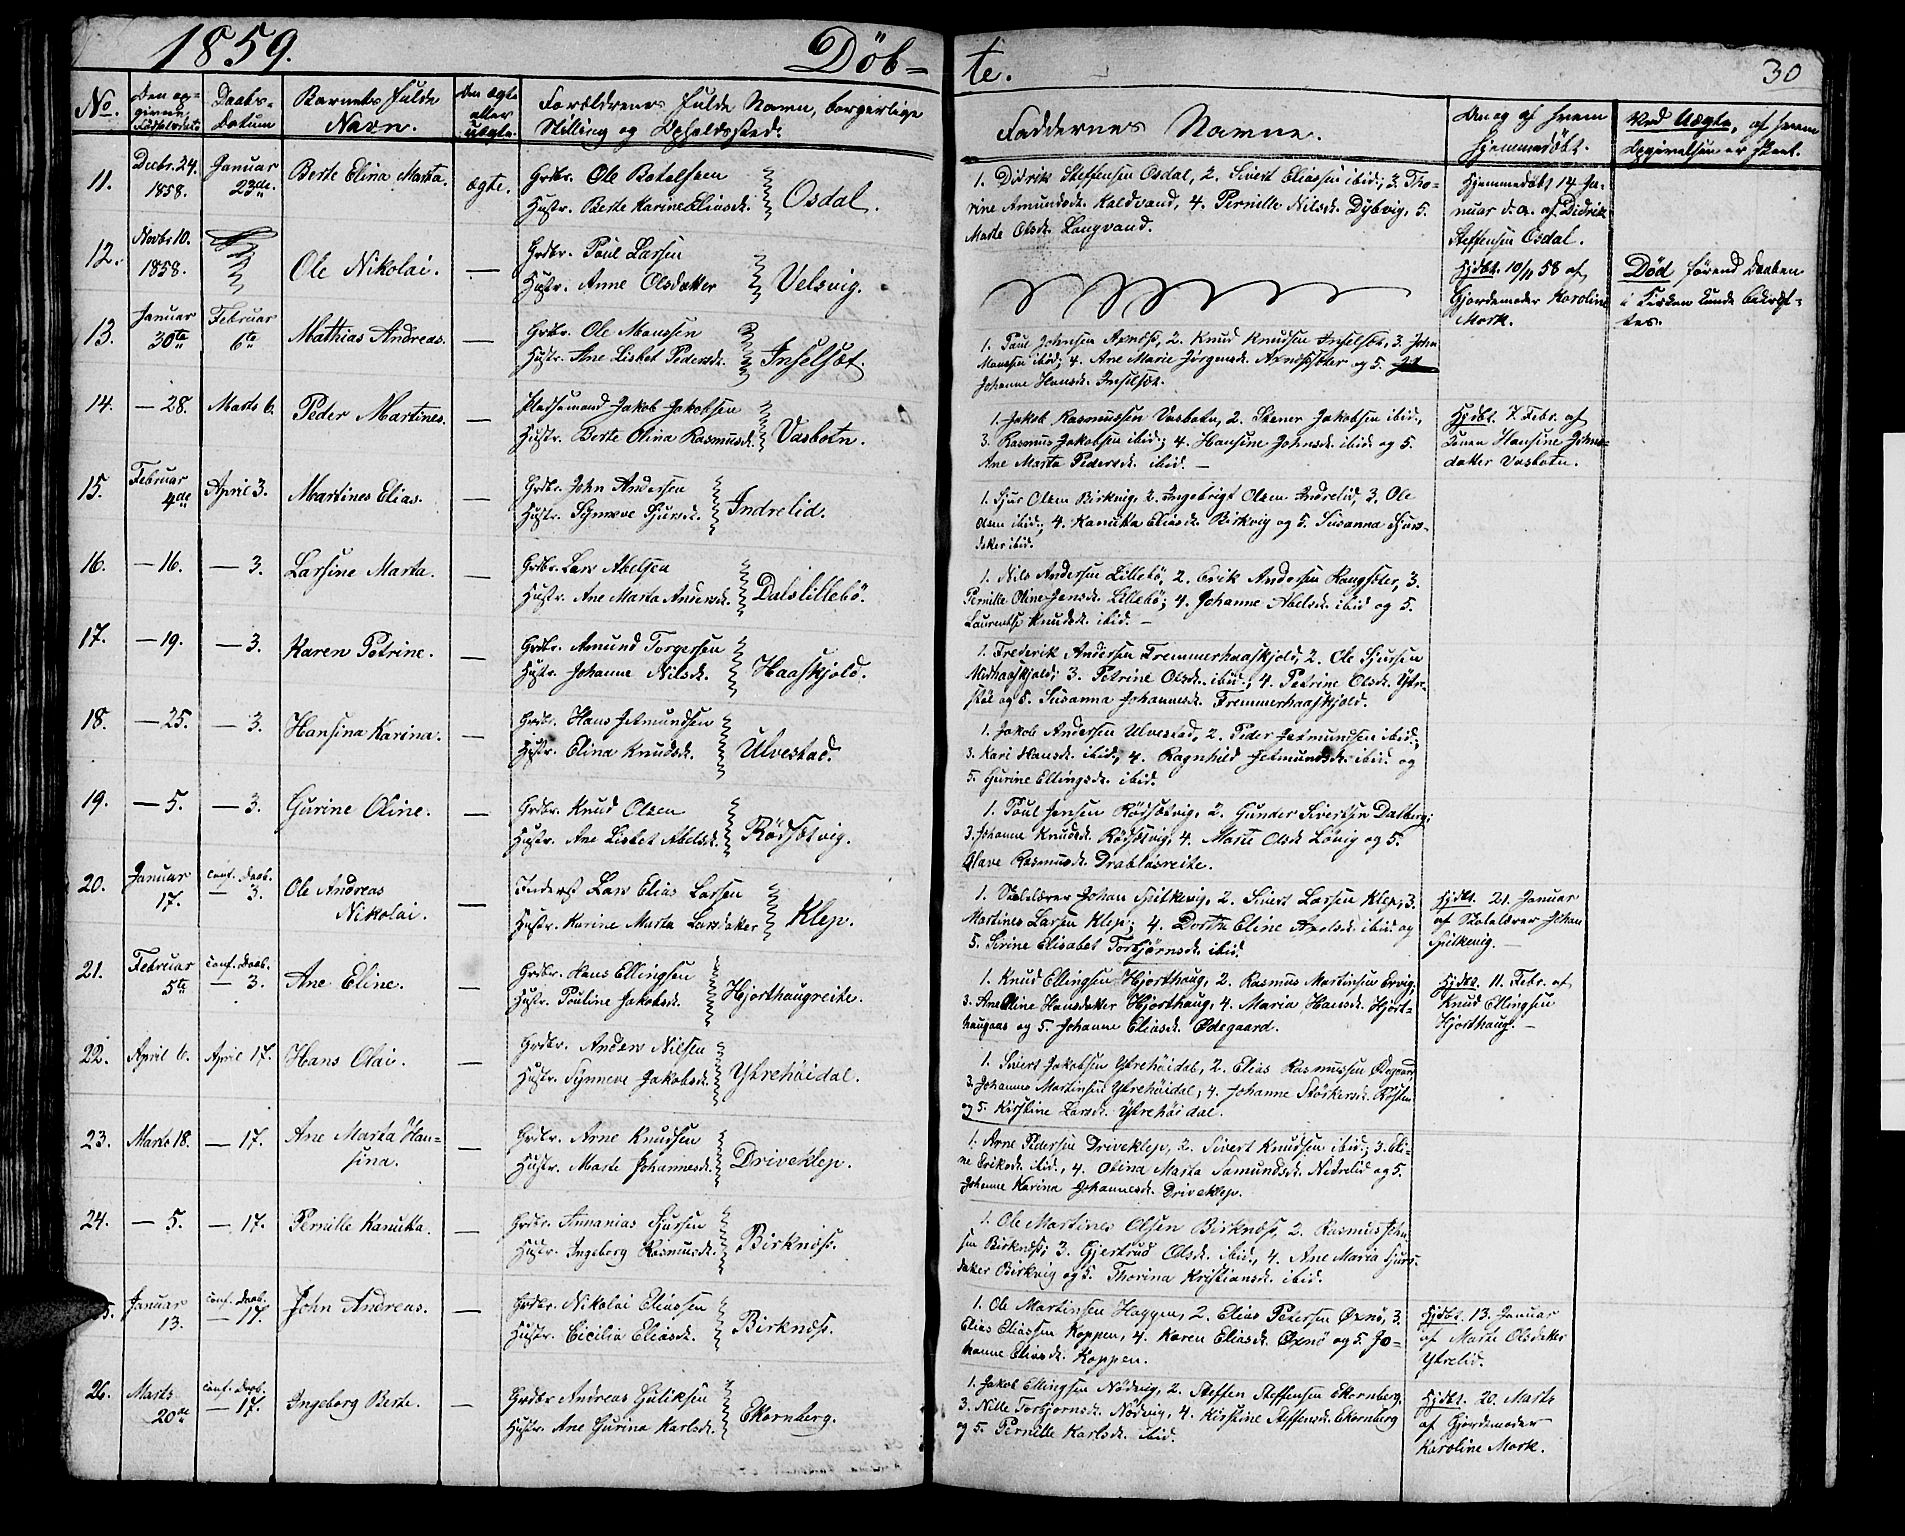 1859. Döb= te. 30
No. Den op=givne Födselsdato Daabs-Datum Barnets fulde Navn. Om ægte eller uægte. Forældrenes fulde Navn, borgerlige Stilling og Opholdssted. Faddernes Navne. Om og af hvem hjemmedöbt. Ved Uægte, af hvem Opgivelsen er skeet.
11. Decbr. 24. 1858. Januar 23de Berte Elina Marta. ægte. Grdbr. Ole Botolfsen
Hustr. Berte Karine Eliasdr. Osdal.
1. Didrik Steffensen Osdal, 2. Sivert Eliassen ibid; 3. Tho=
rine Amundsdr. Kaldvand, 4. Pernille Nilsdr. Dybvig, 5.
Marte Olsdr. Langvand.
Hjemmedöbt 14 Ja=
nuar d. a. af Didrik
Steffensen Osdal.
12. Novbr 10. 1858. Ole Nikolai. — Grdbr. Poul Larsen
Hustr. Anne Olsdatter Velsvig.
Hjdbt. 10/11 58 af
Gjordemoder Karoline
Mork.
Död förend Daaben
i Kirken kunde bekræf=
tes.
13. Januar 30te Februar 6te Mathias Andreas. — Grdbr. Ole Monsen
Hustr. Ane Lisbet Pedersdr. Inselsæt.
1. Poul Johnsen Aarnæs, 2. Knud Knudsen Inselset, 3. John
Monssen ibid; 4. Ane Marie Jörgensdr. Aarnæssæter og 5.
Johanne Hansdr. Inselset.
14. — 28. Marts 6. Peder Martines. — Pladsemand Jakob Jakobsen
Hustr. Berte Olina Rasmusdr. Vasbotn.
1. Jakob Rasmussen Vasbotn, 2. Stener Jakobsen ibid,
3. Rasmus Jakobsen ibid; 4. Hansine Johnsdr. ibid og 5.
Ane Marta Pedersdr. ibid. —
Hjdbt. 7. Febr. af
Konen Hansine Johns=
datter Vasbotn.
15. Februar 4de April 3. Martines Elias. — Grdbr. John Andersen
Hustr. Synneve Sjursdr. Indrelid.
1. Sjur Olsen Birkvig, 2. Ingebrigt Olsen Indrelid, 3. Ole
Olsen ibid; 4. Kanutta Eliasdr. Birkvig og 5. Susanna Sjurs=
datter ibid.
16. — 16. — 3. Larsine Marta. — Grdbr. Lars Abelsen
Hustr. Ane Marta Andersdr. Dalslillebö.
1. Nils Andersen Lillebö, 2. Erik Andersen Kongsæter, 3.
Pernille Oline Jensdr. Lillebö; 4. Johanne Abelsdr. ibid og 5.
Laurentse Knudsdr. ibid. —
17. — 19. — 3. Karen Petrine. — Grdbr. Amund Torgersen
Hustr. Johanne Nilsdr. Haaskjold.
1. Frederik Andersen Fremmerhaaskjold, 2. Ole Sjursen
Nedhaaskjold; 3. Petrine Olsdr. ibid, 4. Petrine Olsdr. Ytre=
stöl og 5. Susanna Johannesdr. Fremmerhaaskjold.
18. — 25. — 3. Hansina Karina. — Grdbr. Hans Jetmundsen
Hustr. Elina Knudsdr. Ulvestad.
1. Jakob Andersen Ulvestad, 2. Peder Jetmundsen ibid;
3. Kari Hansdr. ibid, 4. Ragnhild Jetmundsdr. ibid og
5. Gurine Ellingsdr. ibid.
19. — 5. — 3. Gurine Oline. — Grdbr. Knud Olsen
Hustr. Ane Lisbet Abelsdr. Rödsætvig.
1. Poul Jensen Rödsætvig, 2. Gunder Sivertsen Dalberg;
3. Johanne Knudsdr. Rödsætvig, 4. Marte Olsdr. Lövig og 5.
Olave Rasmusdr. Drablösreite.
20. Januar 17. conf. Daab. — 3. Ole Andreas
Nikolai. — Inderst Lars Elias Larsen
Hustr. Karine Marta Larsdatter Klep.
1. Skolelærer Johan Spilkevig, 2. Sivert Larsen Klep, 3.
Martines Larsen Klep; 4. Dorthe Eline Axelsdr. ibid og
5. Sirine Elisabet Torbjörnsdr. ibid.
Hjdbt. 21. Januar
af Skolelærer Johan
Spilkevig. —
21. Februar 5te conf. Daab. — 3. Ane Eline. — Grdbr. Hans Ellingsen
Hustr. Pouline Jakobsdr. Hjorthaugreite.
1. Knud Ellingsen Hjorthaug, 2. Rasmus Martinsen Ervig,
3. Ane Eline Hansdatter Hjorthaug, 4. Maria Hansdr. Hjort=
haugaas og 5. Johanne Eliasdr. Ödegaard.
Hjdbt. 11. Febr. af
Knud Ellingsen
Hjorthaug. —
22. April 6. April 17. Hans Olai. — Grdbr. Anders Nilsen
Hustr. Synneve Jakobsdr. Ytrehöidal.
1. Sivert Jakobsen Ytrehöidal, 2. Elias Rasmussen Ödegaard
3. Johannes Martinsen Ytrehöidal, 4. Johanne Störkersdr. Rösten
og 5. Kirstine Larsdr. Ytrehöidal.
23. Marts 18. — 17. Ane Marta Han=
sina. — Grdbr. Arne Knudsen
Hustr. Marte Johannesdr. Driveklep.
1. Arne Pedersen Driveklep, 2. Sivert Knudsen ibid; 3. Eli=
ne Eriksdr. ibid, 4. Olina Marta Samundsdr. Nedrelid og 5.
Johanne Karina Johannesdr. Driveklep.
24. — 5. — 17. Pernille Kanutta. — Grdbr. Annanias Sjursen
Hustr. Ingeborg Rasmusdr. Birknæs.
1. Ole Martines Olsen Birknæs, 2. Rasmus John=
sen Birknæs; 3. Gjertrud Olsdr. ibid, 4. Ane Maria Sjurs=
datter Birkvig og 5. Thorina Kristiansdr. ibid.
25. Januar 13. conf. Daab. — 17. John Andreas. — Grdbr. Nikolai Eliassen
Hustr. Cicilia Eliasdr. Birknæs.
1. Ole Martinsen Haggen, 2. Elias Petersen Oxnö, 3.
Elias Eliassen Koppen, 4. Karen Eliasdr. Oxnö og 5. Jo=
hanne Eliasdr. Koppen.
Hjdbt. 13. Januar
af Marte Olsdatter
Ytrelid.
26. Marts 20de conf. Daab. — 17. Ingeborg Berte. — Grdbr Andreas Guliksen
Hustr. Ane Gurina Karlsdr. Ekornberg.
1. Jakob Ellingsen Nödvig, 2. Steffen Steffensen Ekornberg
3. Nille Torbjörnsdr. Nödvig, 4. Kirstine Steffensdr. Ekornberg
og 5. Pernille Karlsdr. ibid.
Hjdbt. 20. Marts
af Gjordemoder
Karoline Mork.